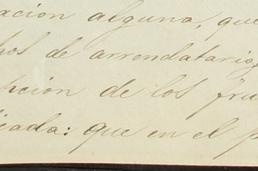 ación alguna, que
hos de arrendatario,
pción de los fru
icada: que en el p